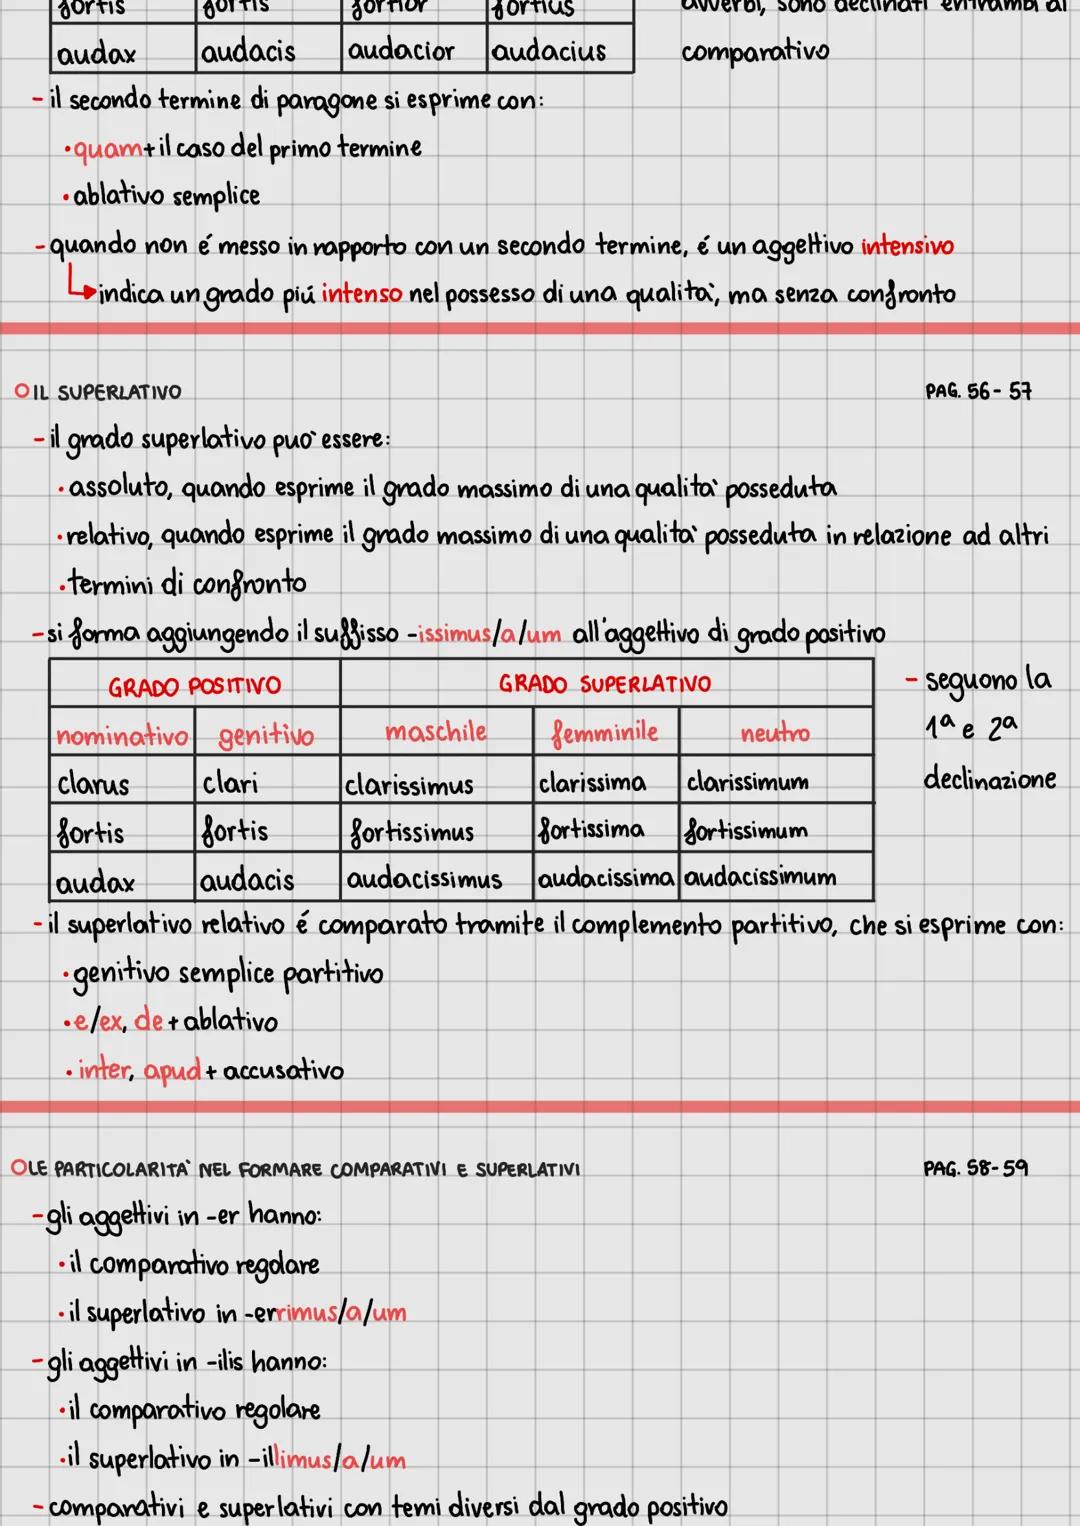 fortis fortis fortior fortius avverbi, sono declinati entrambi al
audax audacis audacior audacius comparativo
- il secondo termine di paragone si esprime con:
• quam+il caso del primo termine
• ablativo semplice
- quando non é messo in rapporto con un secondo termine, é un aggettivo intensivo
indica un grado piú intenso nel possesso di una qualita', ma senza confronto
IL SUPERLATIVO PAG. 56-57
- il grado superlativo puo' essere:
• assoluto, quando esprime il grado massimo di una qualita' posseduta
• relativo, quando esprime il grado massimo di una qualita' posseduta in relazione ad altri
• termini di confronto
- si forma aggiungendo il suffisso -issimus/a/um all'aggettivo di grado positivo
GRADO POSITIVO GRADO SUPERLATIVO - seguono la
nominativo genitivo maschile femminile neutro 1ª e 2ª
clarus clari clarissimus clarissima clarissimum declinazione
fortis fortis fortissimus fortissima fortissimum
audax audacis audacissimus audacissima audacissimum
- il superlativo relativo é comparato tramite il complemento partitivo, che si esprime con:
• genitivo semplice partitivo
• e/ex, de + ablativo
• inter, apud + accusativo
LE PARTICOLARITA' NEL FORMARE COMPARATIVI E SUPERLATIVI PAG. 58-59
- gli aggettivi in -er hanno:
• il comparativo regolare
• il superlativo in -errimus/a/um
- gli aggettivi in -ilis hanno:
• il comparativo regolare
• il superlativo in -illimus/a/um
- comparativi e superlativi con temi diversi dal grado positivo